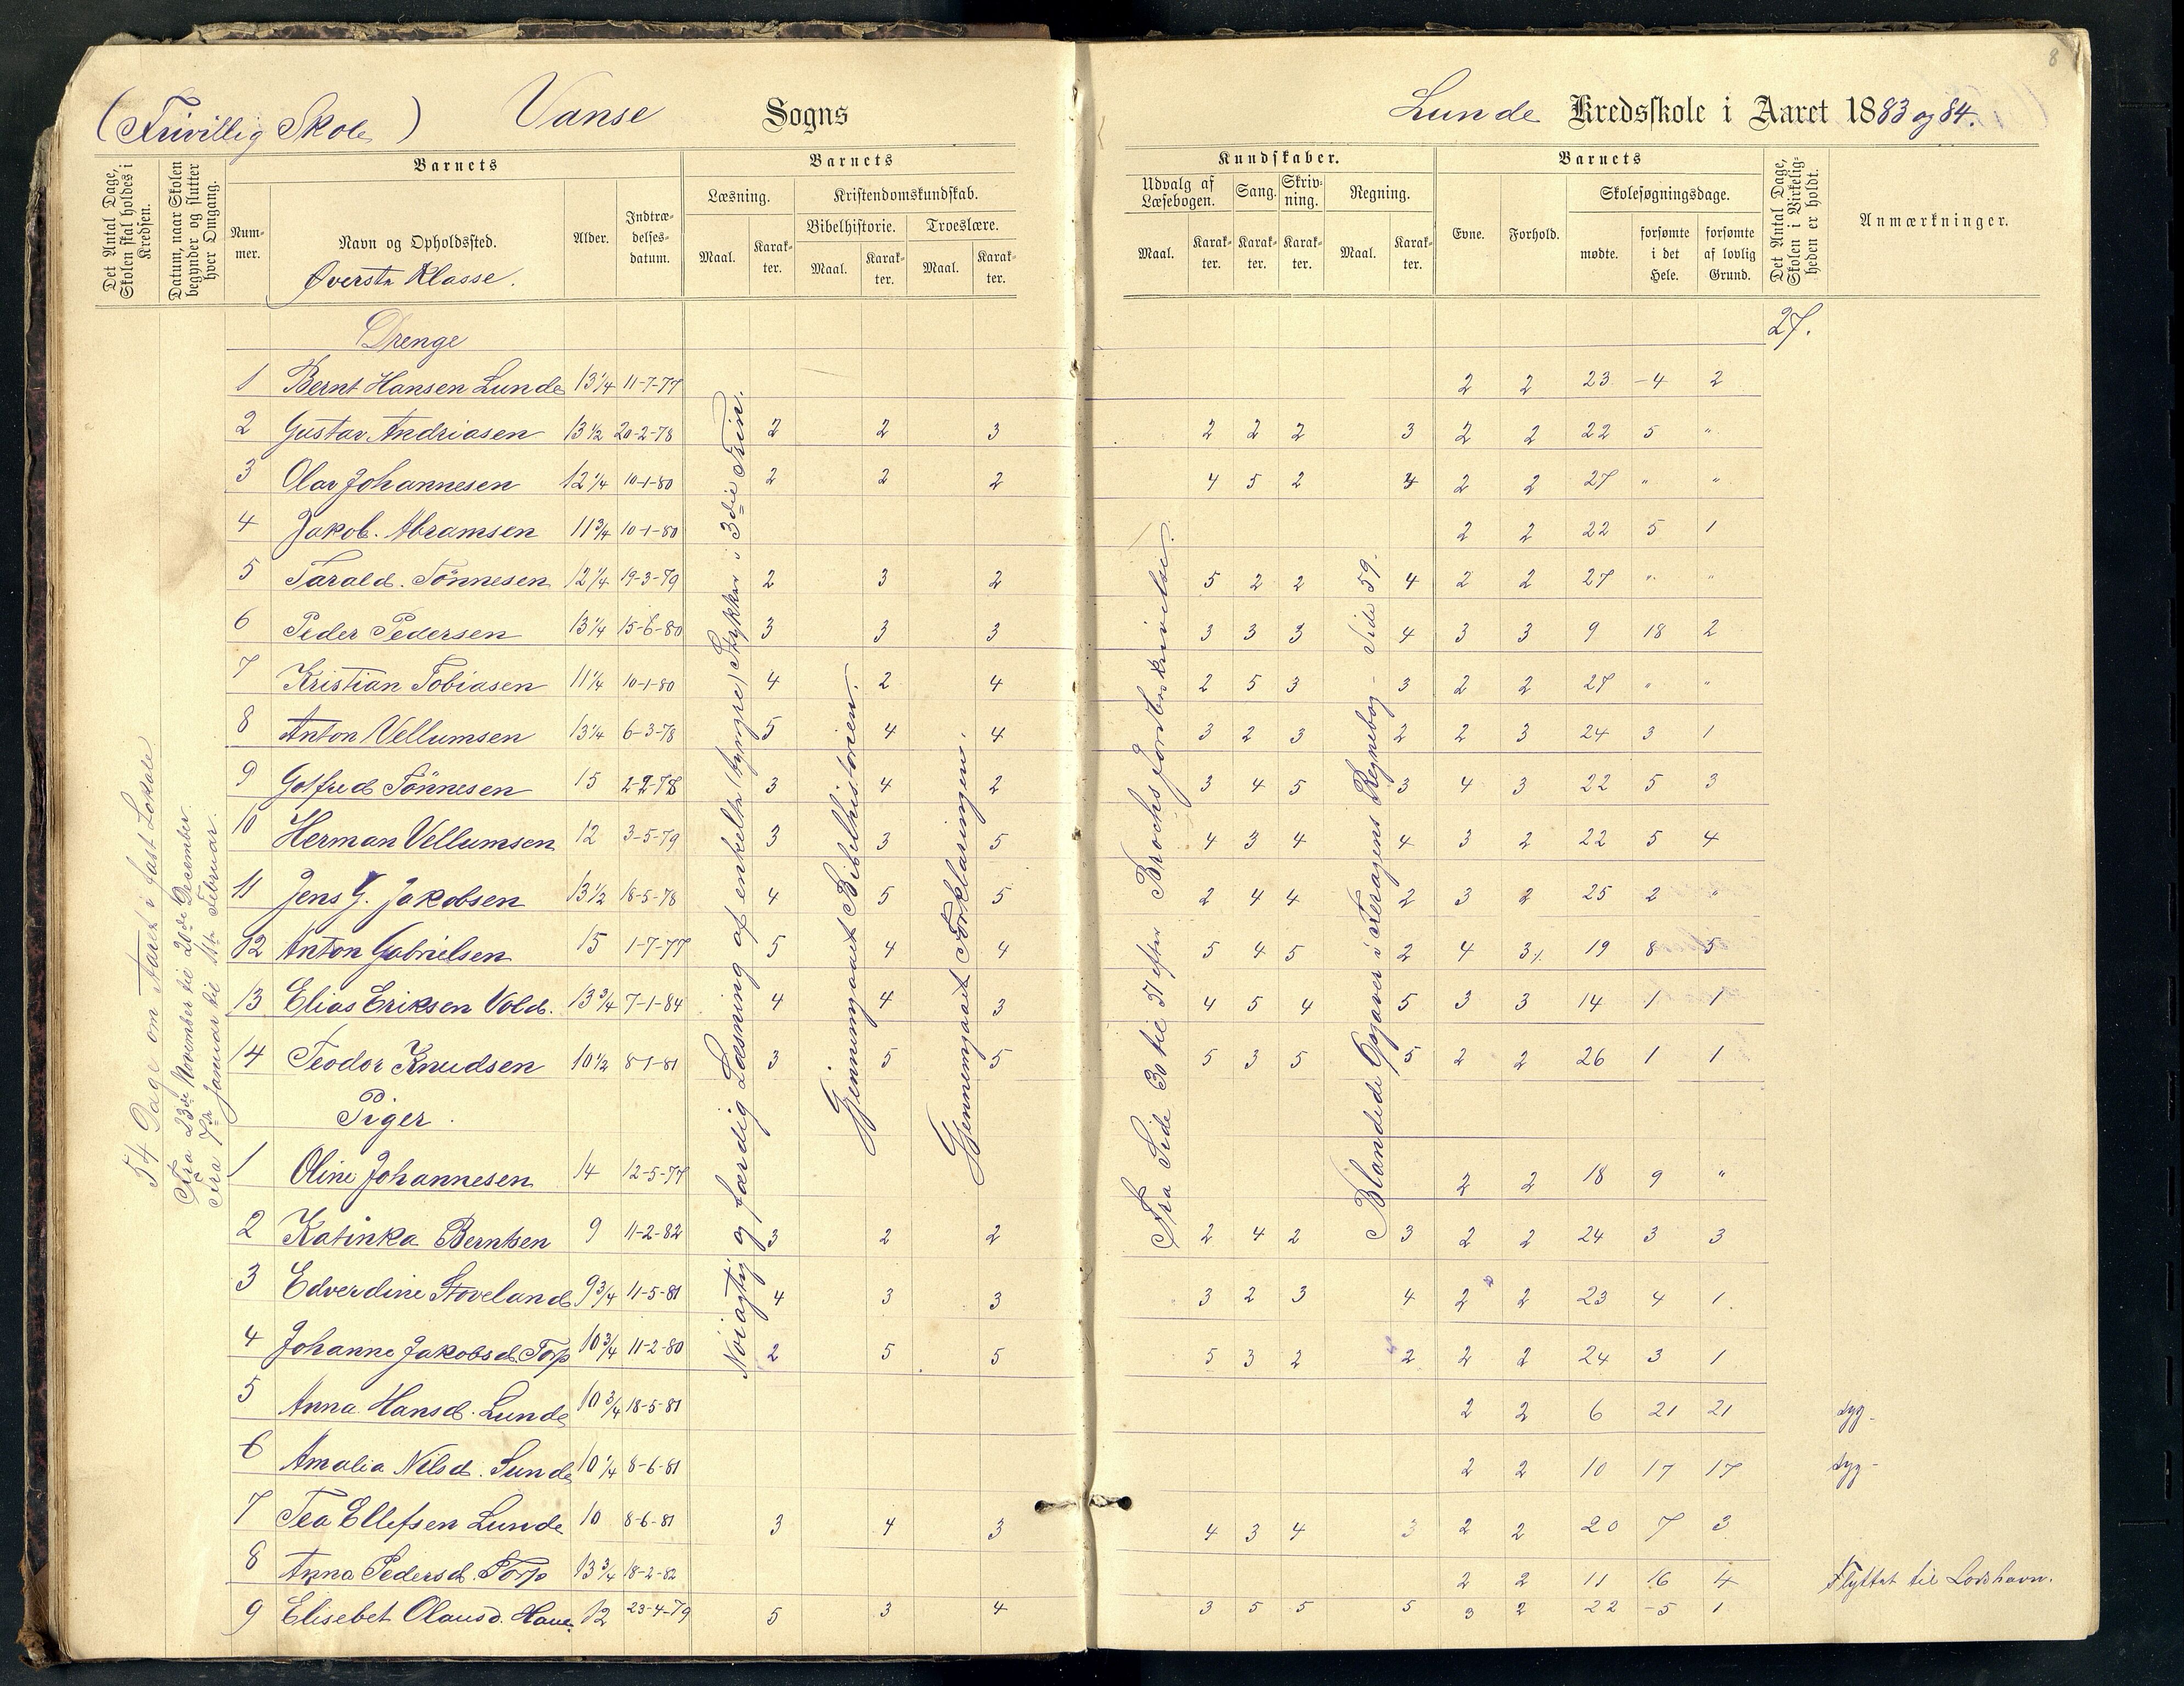 8
(Frivillig Skole) Vanse Sogns
Lunde Kredsskole i Aaret 1883 og 84.
Det Antal Dage, Skolen skal holdes i Kredsen.
Datum, naar Skolen begynder og slutter hver Omgang.
Barnets
Nummer.
Navn og Opholdssted.
Øverste Klasse.
Alder.
Indtrædelsesdatum.
Barnets
Læsning.
Maal. Karakter.
Kristendomskundskab.
Bibelhistorie. Troeslære.
Maal. Karakter. Maal. Karakter.
Kundskaber.
Udvalg af Læsebogen. Sang. Skrivning. Regning.
Maal. Karakter. Karakter. Karakter. Maal. Karakter.
Barnets
Evne. Forhold. Skolesøgningsdage.
mødte. forsømte i det Hele. forsømte af lovlig Grund.
Det Antal Dage, Skolen i Virkeligheden er holdt.
Anmærkninger.
54 Dage om Aaret i fast Lokale
Fra 23de November til 20de December.
Fra 7de Januar til Februar.
Nöiagtig og færdig Læsning af enkelte (tyngre) Stykker i 3die Trin.
Gjennemgaaet Bibelhistorien.
Gjennemgaaet Forklaringen.
Fra Side 30 til 51 efter Brochs Jordbeskrivelse.
Blandede Opgaver i Feragens Regnebog - Side 59.
27.
Drenge
1 Bernt Hansen Lunde 13 1/4 11-7-77 2 2 23 -4 2
2 Gustav Andriasen 13 1/2 20-2-78 2 2 3 2 2 2 3 2 2 22 5 "
3 Olav Johannesen 12 1/4 10-1-80 2 2 2 4 5 2 4 2 2 27 " "
4 Jakob. Abramsen 11 3/4 10-1-80 2 2 22 5 1
5 Tarald. Tönnesen 12 1/4 19-3-79 2 3 2 5 2 2 4 2 2 27 " "
6 Peder Pedersen 13 1/4 15-6-80 3 3 3 3 3 3 4 3 3 9 18 2
7 Kristian Tobiasen 11 1/4 10-1-80 4 2 4 2 5 3 3 2 2 27 " "
8 Anton Vellumsen 13 1/4 6-3-78 5 4 4 3 2 3 2 2 3 24 3 1
9 Golfred Tönnesen 15 2-2-78 3 4 2 3 4 5 3 4 3 22 5 3
10 Herman Vellumsen 12 3-5-79 3 3 5 4 3 4 4 3 2 22 5 4
11 Jens G. Jakobsen 13 1/2 18-5-78 4 5 5 2 4 4 2 3 2 25 2 "
12 Anton Gabrielsen 15 1-7-77 5 4 4 5 4 5 2 4 3 19 8 5
13 Elias Eriksen Vold. 13 3/4 7-1-84 4 4 3 4 5 4 5 3 3 14 1 1
14 Teodor Knudsen 10 1/2 8-1-81 3 5 5 5 3 5 5 2 2 26 1 1
Piger.
1 Oline Johannesen 14 12-5-77 2 2 18 9 "
2 Katinka Berntsen 9 11-2-82 3 2 2 2 4 2 3 2 2 24 3 3
3 Edverdine Stoveland 9 3/4 11-5-81 4 3 3 3 2 3 4 2 2 23 4 1.
4 Johanne Jakobsd. Torp 10 3/4 11-2-80 2 5 5 5 3 2 2 2 2 24 3 1
5 Anna Hansd. Lunde 10 3/4 18-5-81 2 2 6 21 21 syg-
6 Amalia Nilsd. Lunde 10 1/4 8-6-81 2 2 10 17 17 syg-
7 Tea Ellefsen Lunde 10 8-6-81 3 4 3 4 3 4 3 2 2 20 7 3
8 Anna Pedersd. Torp 13 3/4 18-2-82 2 2 11 16 4 Flyttet til Loshavn.
9 Elisebet Olausd. Haue. 12 23-4-79 5 3 4 3 5 5 5 3 2 22 -5 1